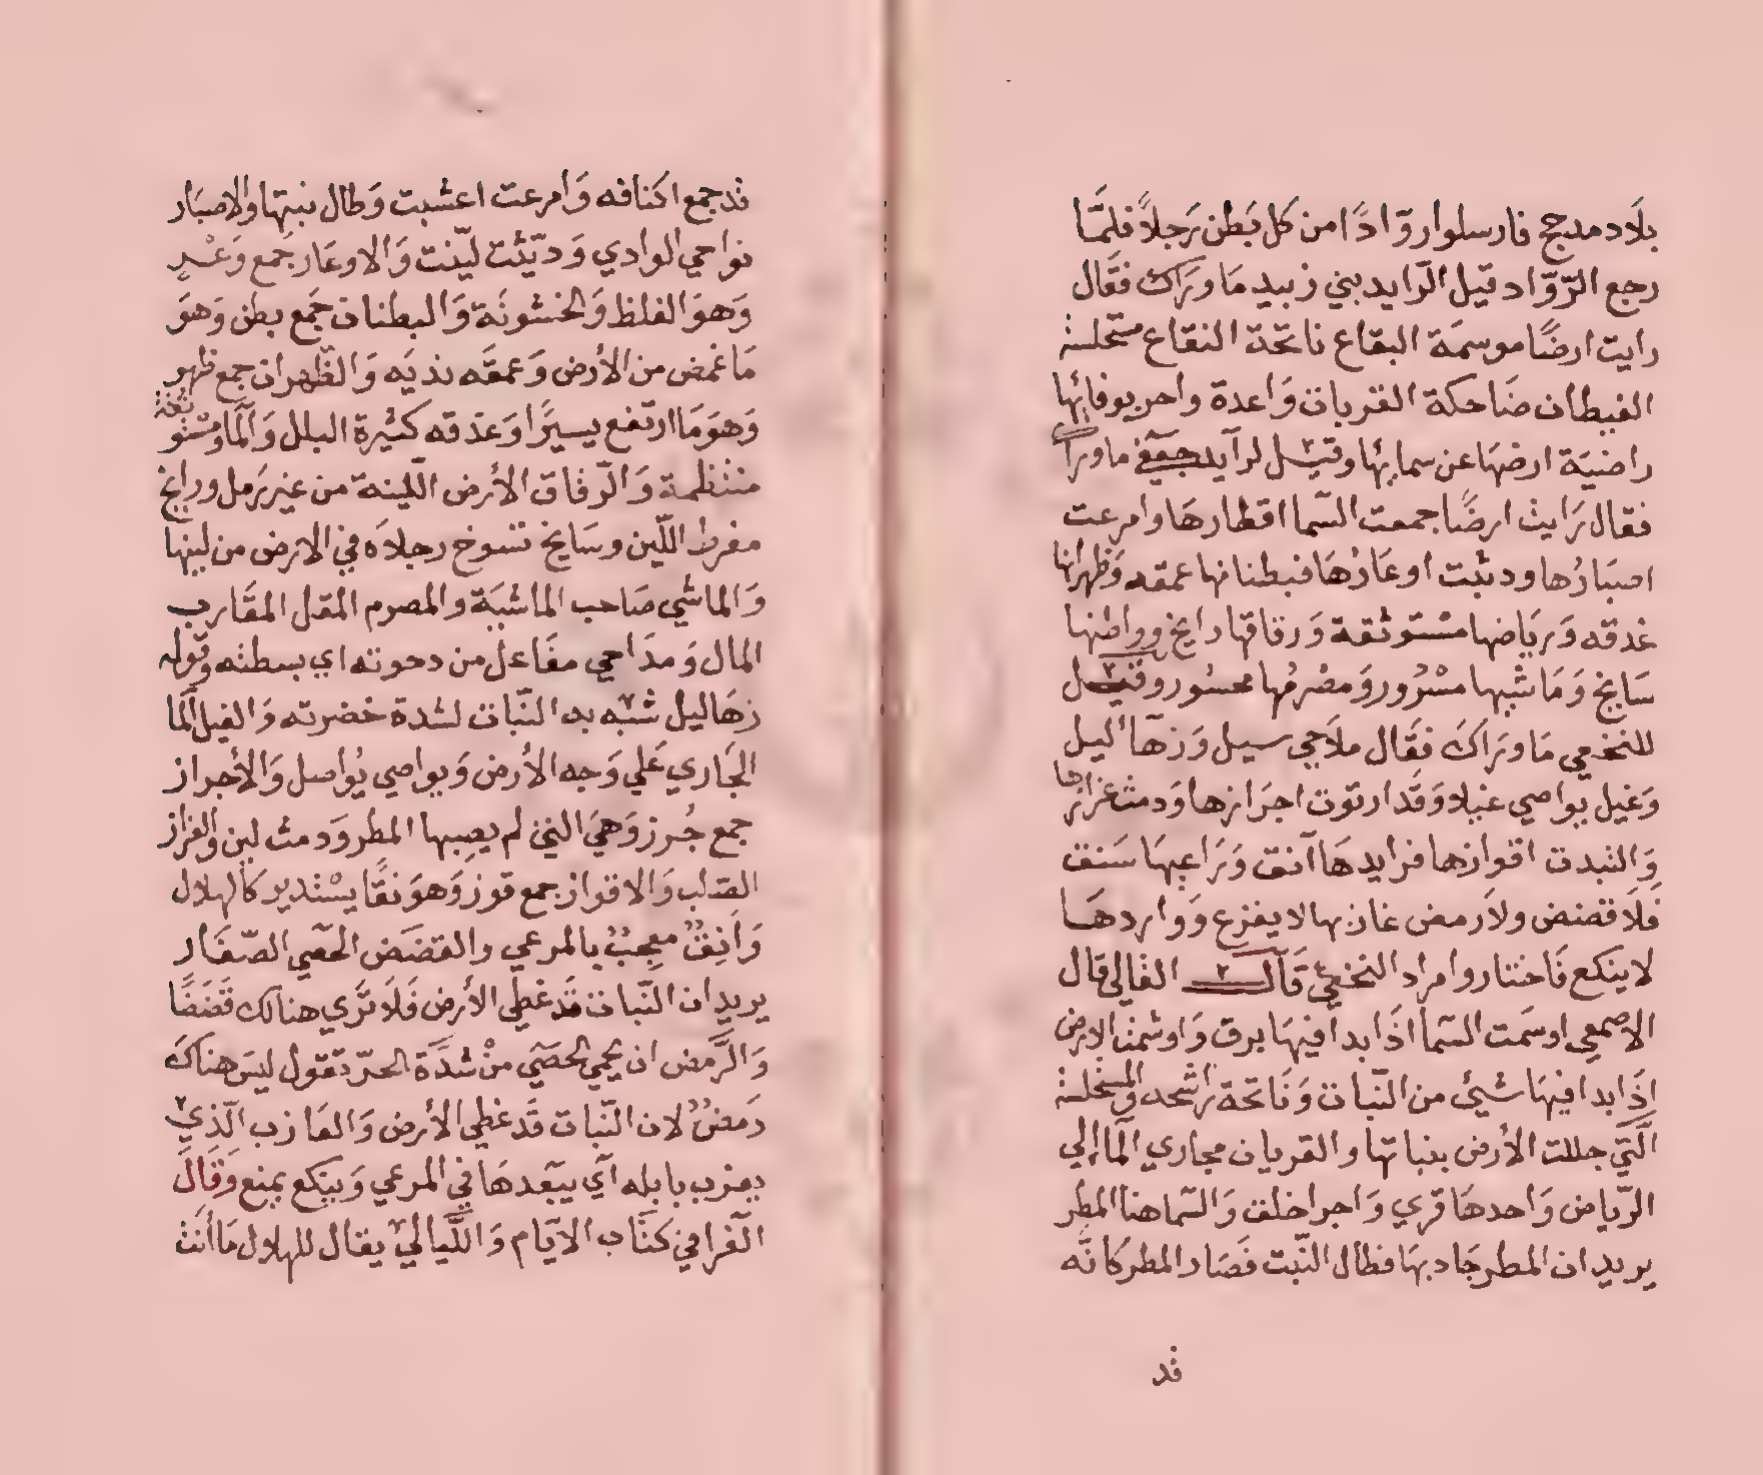 بلَاد مدحج فارسلوا روّادًا من كل بَطن رَجلاً فلمَّا
رجع الرّوّاد قيل الرّايد بني زبيد مَا ورَاك فقَال
رايت ارضًا موسمَة البقاع ناتحة النقاع مستحلسة
الغيطان ضَاحكة القريان وَاعدة واحر بوفائِها
راضيَة ارضهَا عن سمائها وقيل لرآيد جعفي ما وراك
فقال رَايت ارضًا جمعت السّما اقطارهَا وامرعت
اصبَارُها وديثت اوعَارُهَا فبطنانها عمقه وَظهرانها
غدقه وَريَاضها مسْتوثقة وَرقاقها رايخ وواطئها
سَايخ وَمَاشيها مسْرُور وَمصْرمُها محسُور وقيل
للنخعي مَا ورَاكَ فقَال ملَاحي سيل وَزهَآ ليل
وَغيل يواصي غيلا وَقَد ارتوت اجرَازها وَدمث عزازها
وَالتبدت اقوازها فرايدهَا آنق وَرَاعيهَا سَنق
فلَا قضض ولاَ رمض عازبها لا يفزع وَوَاردهَا
لا ينكع فَاختاروا مراد النخعيّ قَالَ القالي قال
الاصمعي اوسمَت السّما اذَا بدا فيهَا برق وَاوشمت الارض
اذَا بدا فيهَا شيئ من النّبات وَنَاتحة راشحه والمستحلسة
الَّتي جللت الأرض بنباتها والقريان مجاري المآ إلي
الرّياض وَاحدهَا قري وَاحرا خلق وَالسّما هنا المطر
يريد ان المطر جَاد بهَا فطال النّبت فصَار المطر كانّه
قد
قد جمع اكنافه وَامرعت اعشبت وَطال نبتها والاصبَار
نواحي الوادي وَديّثت ليّنت وَالاوعَار جَمع وَعْرٍ
وَهوَ الغلظ وَالخشونَة وَالبطنان جَمع بطن وَهوَ
مَا غمض من الأرض وَعمقَه نديَه وَالظّهران جمع ظهر
وَهوَ مَا ارتفع يسيرًا وَغدقه كثيرة البلل وَالمآ ومسْتوثقة
منتظمة وَالرّقاق الأرض اللّينة من غير رَمل ورايخ
مفرط اللّين وسَايخ تسوخ رجلاَه في الارض من لينها
وَالماشي صَاحب الماشيَة والمصرم المقل المقَارب
المال وَمدَاحي مفَاعل من دحوته اي بسطته وَقوله
زهَا ليل شبّه به النّبات لشدة خضرته وَالغيل المآ
الجَاري عَلي وَجه الأرض وَيواصي يُواصل وَالأجراز
جمع جُرز وَهيَ التي لم يصِبها المطر وَدمث لين والعزاز
الصّلب وَالاقواز جمع قوز وَهوَ نقًا يسْتدير كالهلال
وَآنقٌ معجبٌ بالمرعي والقضَض الحصَي الصّغَار
يريد ان النّبات قَد غطي الأرض فَلَا تَرَي هنالك قَضَضًا
وَالرَّمض ان يحمي الحصَي منْ شدَّة الحرّ تقول ليسَ هنَاكَ
رَمضٌ لان النّبات قَد غطي الأرض وَالعَازب الّذي
يعزب بابله اَي يبَعدهَا في المرعي وَينكع يمنع وَقَالَ
الفَرا في كتَاب الايَام وَاللَّيَالي يقال للهلال مَا أَنت